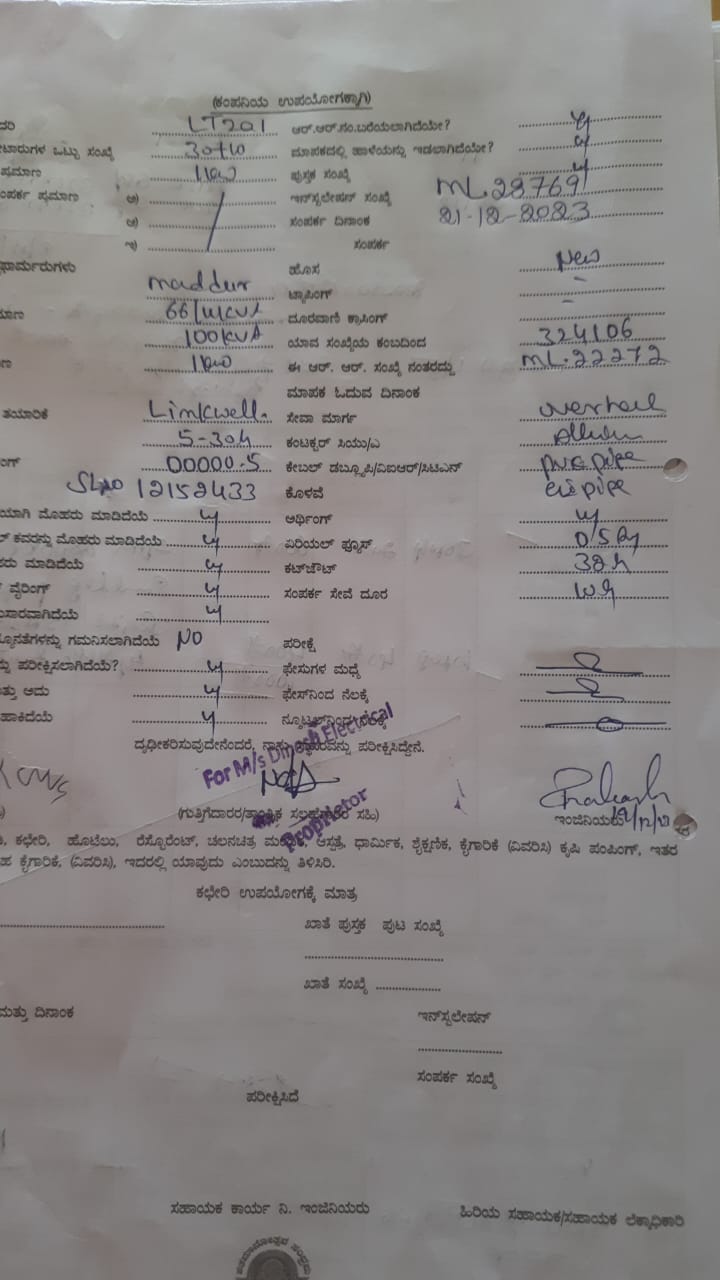 (ಕಂಪನಿಯ ಉಪಯೋಗಕ್ಕಾಗಿ)
LT201 ಆರ್.ಆರ್.ನಂ.ಬರೆಯಲಾಗಿದೆಯೇ? y
ಟಾರುಗಳ ಒಟ್ಟು ಸಂಖ್ಯೆ ಮಾಪಕದಲ್ಲಿ ಹಾಳೆಯನ್ನು ಇಡಲಾಗಿದೆಯೇ? y
ಪ್ರಮಾಣ 1kw ಪುಸ್ತಕ ಸಂಖ್ಯೆ y
ಸಂಪರ್ಕ ಪ್ರಮಾಣ ಅ) ಇನ್‌ಸ್ಟಲೇಷನ್ ಸಂಖ್ಯೆ ML28769
ಆ) ಸಂಪರ್ಕ ದಿನಾಂಕ 21-12-2023
ಇ) ಸಂಪರ್ಕ
ಫಾರ್ಮರುಗಳು ಹೊಸ New
maddur ಟ್ಯಾಪಿಂಗ್ -
ಮಾಣ 66/11KVA ದೂರವಾಣಿ ಕ್ರಾಸಿಂಗ್ -
100KVA ಯಾವ ಸಂಖ್ಯೆಯ ಕಂಬದಿಂದ 324106
ಣ 1kw ಈ ಆರ್. ಆರ್. ಸಂಖ್ಯೆ ನಂತರದ್ದು ML.22272
ಮಾಪಕ ಓದುವ ದಿನಾಂಕ
ತಯಾರಿಕೆ Linkwell. ಸೇವಾ ಮಾರ್ಗ overhead
5-30A ಕಂಟಕ್ಟರ್ ಸಿಯು/ಎ
ಂಗ್ 00000.5 ಕೇಬಲ್ ಡಬ್ಲ್ಯೂಪಿ/ವಿಐಆರ್/ಸಿಟಿಎನ್ pvc pipe
SLNO 12152433 ಕೊಳವೆ GI pipe
ಯಾಗಿ ಮೊಹರು ಮಾಡಿದೆಯೆ y ಅರ್ಥಿಂಗ್ y
ಕವರನ್ನು ಮೊಹರು ಮಾಡಿದೆಯೆ y ಏರಿಯಲ್ ಫ್ಯೂಸ್
ಹರು ಮಾಡಿದೆಯೆ y ಕಟ್‌ಔಟ್ 32A
ವೈರಿಂಗ್ y ಸಂಪರ್ಕ ಸೇವೆ ದೂರ
ುಸಾರವಾಗಿದೆಯೆ y
್ಯೂನತೆಗಳನ್ನು ಗಮನಿಸಲಾಗಿದೆಯೆ NO ಪರೀಕ್ಷೆ
ನ್ನು ಪರೀಕ್ಷಿಸಲಾಗಿದೆಯೆ? y ಫೇಸುಗಳ ಮಧ್ಯೆ
ತ್ತು ಅದು y ಫೇಸ್‌ನಿಂದ ನೆಲಕ್ಕೆ
ಹಾಕಿದೆಯೆ y ನ್ಯೂಟ್ರಲ್‌ನಿಂದ ನೆಲಕ್ಕೆ
ದೃಢೀಕರಿಸುವುದೇನೆಂದರೆ, ನಾನು ಸ್ಥಾವರವನ್ನು ಪರೀಕ್ಷಿಸಿದ್ದೇನೆ.
For M/s Dinesh Electrical
Proprietor
(ಗುತ್ತಿಗೆದಾರರ/ತಾಂತ್ರಿಕ ಸಲಹೆಗಾರರ ಸಹಿ) ಇಂಜಿನಿಯರ್
ಕಛೇರಿ, ಹೊಟೆಲು, ರೆಸ್ಟೊರೆಂಟ್, ಚಲನಚಿತ್ರ ಮಂದಿರ, ಆಸ್ಪತ್ರೆ, ಧಾರ್ಮಿಕ, ಶೈಕ್ಷಣಿಕ, ಕೈಗಾರಿಕೆ (ವಿವರಿಸಿ) ಕೃಷಿ ಪಂಪಿಂಗ್, ಇತರ
ಹ ಕೈಗಾರಿಕೆ, (ವಿವರಿಸಿ), ಇದರಲ್ಲಿ ಯಾವುದು ಎಂಬುದನ್ನು ತಿಳಿಸಿರಿ.
ಕಛೇರಿ ಉಪಯೋಗಕ್ಕೆ ಮಾತ್ರ
ಖಾತೆ ಪುಸ್ತಕ ಪುಟ ಸಂಖ್ಯೆ
ಖಾತೆ ಸಂಖ್ಯೆ
ಮತ್ತು ದಿನಾಂಕ ಇನ್‌ಸ್ಟಲೇಷನ್
ಸಂಪರ್ಕ ಸಂಖ್ಯೆ
ಪರೀಕ್ಷಿಸಿದೆ
ಸಹಾಯಕ ಕಾರ್ಯ ನಿ. ಇಂಜಿನಿಯರು ಹಿರಿಯ ಸಹಾಯಕ/ಸಹಾಯಕ ಲೆಕ್ಕಾಧಿಕಾರಿ